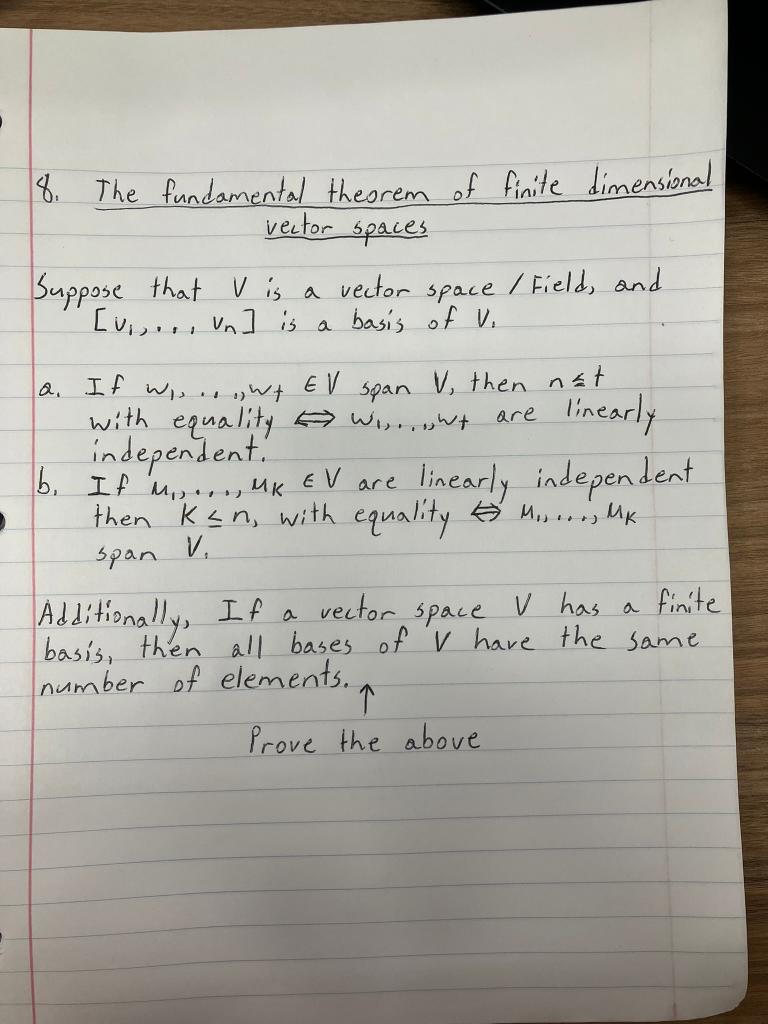 8. The fundamental theorem of finite dimensional
vector spaces
Suppose that V is a vector space / Field, and
[v₁,..., vₙ] is a basis of V.
a. If w₁,...,,wₜ ∈ V span V, then n ≤ t
with equality ⟺ w₁,...,,wₜ are linearly
independent.
b. If u₁,..., uₖ ∈ V are linearly independent
then K ≤ n, with equality ⟺ u₁,..., uₖ
span V.
Additionally, If a vector space V has a finite
basis, then all bases of V have the same
number of elements. ↑
Prove the above